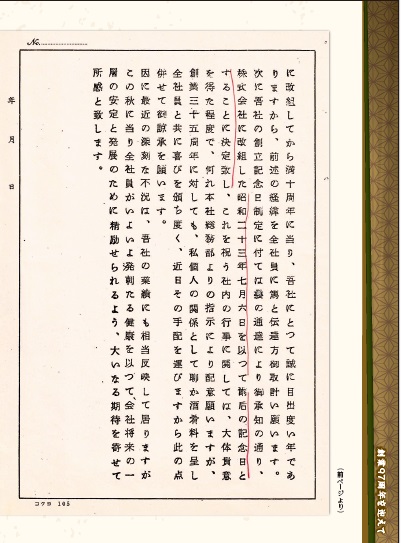 No.
に改組してから満十周年に当り、吾社にとつて誠に目出度い年であ
りますから、前述の経緯を全社員に篤と伝達方御取計い願います。
次に吾社の創立記念日制定に付ては曩の通達により御承知の通り、
株式会社に改組した昭和二十三年七月六日を以つて爾后の記念日と
することに決定致し、これを祝う社内の行事に関しては、大体貴意
を得た程度で、何れ本社総務部よりの指示により配意願いますが、
創業三十五周年に対しても、私個人の関係として聊か酒肴料を呈し
全社員と共に喜びを頒ち度く、近日その手配を運びますから此の点
併せて御諒承を願います。
因に最近の深刻な不況は、吾社の業績にも相当反映して居りますが
この秋に当り全社員がいよいよ溌剌たる健康を以つて、会社将来の一
層の安定と発展のために精励せられるよう、大いなる期待を寄せて
所感と致します。
年 月 日
コクヨ 105
(前ページより)
創業97周年を迎えて